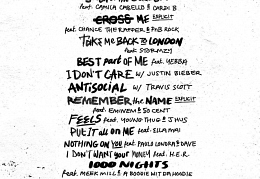 feat. CAMILA CABELLO & CARDI B
CROSS ME EXPLICIT
feat. CHANCE THE RAPPER & PnB ROCK
TAKE ME BACK TO LONDON
feat. STORMZY
BEST PART OF ME feat. YEBBA
I DON'T CARE w/ JUSTIN BIEBER
ANTISOCIAL w/ TRAVIS SCOTT
REMEMBER THE NAME EXPLICIT
feat. EMINEM & 50 CENT
FEELS feat. YOUNG THUG & J HUS
PUT IT ALL ON ME feat. ELLA MAI
NOTHING ON YOU feat. PAULO LONDRA & DAVE
I DON'T WANT YOUR MONEY feat. H.E.R.
1000 NIGHTS
feat. MEEK MILL & A BOOGIE WIT DA HOODIE